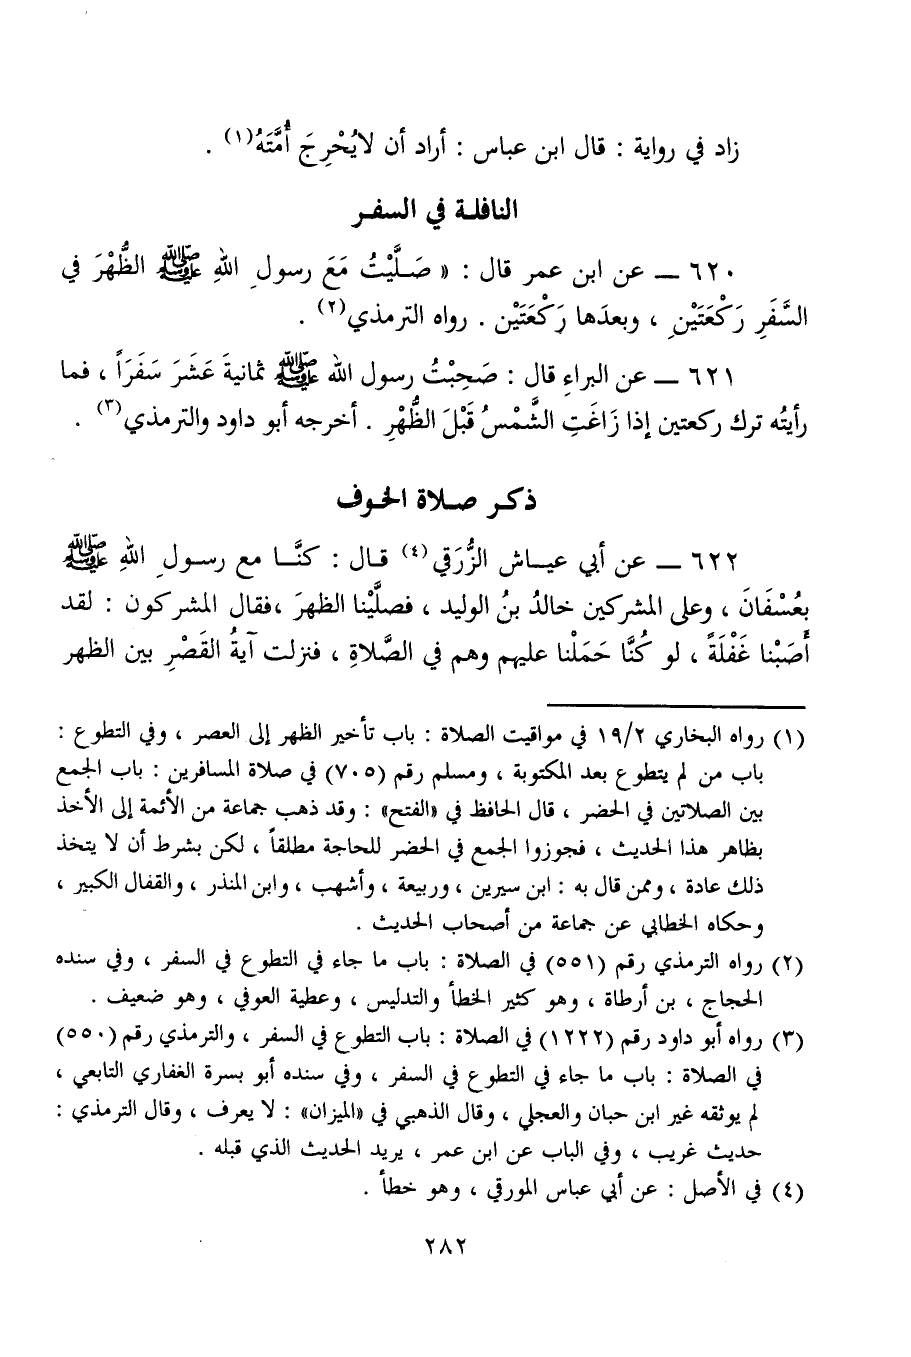 زاد في رواية : قال ابن عباس : أراد أن لايُحْرِجَ أُمَّتَهُ(١) .
النافلة في السفر
٦٢٠ — عن ابن عمر قال : « صَلَّيْتُ مَعَ رسولِ اللهِ ﷺ الظُّهْرَ في
السَّفَرِ رَكْعَتَيْنِ ، وبعدَها رَكْعَتَيْن . رواه الترمذي(٢) .
٦٢١ — عن البراءِ قال : صَحِبْتُ رسول الله ﷺ ثمانيةَ عَشَرَ سَفَرَاً ، فما
رأيتُه ترك ركعتين إذا زَاغَتِ الشَّمْسُ قَبْلَ الظُّهْرِ . أخرجه أبو داود والترمذي(٣) .
ذكر صلاة الخوف
٦٢٢ — عن أبي عياش الزُّرَقي(٤) قال : كنَّا مع رسولِ اللهِ ﷺ
بِعُسْفَانَ ، وعلى المشركين خالدُ بنُ الوليد ، فصلَّيْنا الظهرَ ،فقال المشركون : لقد
أَصَبْنا غَفْلَةً ، لو كُنَّا حَمَلْنا عليهم وهم في الصَّلاةِ ، فنزلت آيةُ القَصْرِ بين الظهر
(١) رواه البخاري ١٩/٢ في مواقيت الصلاة : باب تأخير الظهر إلى العصر ، وفي التطوع :
باب من لم يتطوع بعد المكتوبة ، ومسلم رقم (٧٠٥) في صلاة المسافرين : باب الجمع
بين الصلاتين في الحضر ، قال الحافظ في «الفتح» : وقد ذهب جماعة من الأئمة إلى الأخذ
بظاهر هذا الحديث ، فجوزوا الجمع في الحضر للحاجة مطلقاً ، لكن بشرط أن لا يتخذ
ذلك عادة ، وممن قال به : ابن سيرين ، وربيعة ، وأشهب ، وابن المنذر ، والقفال الكبير ،
وحكاه الخطابي عن جماعة من أصحاب الحديث .
(٢) رواه الترمذي رقم (٥٥١) في الصلاة : باب ما جاء في التطوع في السفر ، وفي سنده
الحجاج ، بن أرطاة ، وهو كثير الخطأ والتدليس ، وعطية العوفي ، وهو ضعيف .
(٣) رواه أبو داود رقم (١٢٢٢) في الصلاة : باب التطوع في السفر ، والترمذي رقم (٥٥٠)
في الصلاة : باب ما جاء في التطوع في السفر ، وفي سنده أبو بسرة الغفاري التابعي ،
لم يوثقه غير ابن حبان والعجلي ، وقال الذهبي في «الميزان» : لا يعرف ، وقال الترمذي :
حديث غريب ، وفي الباب عن ابن عمر ، يريد الحديث الذي قبله .
(٤) في الأصل : عن أبي عباس المورقي ، وهو خطأ .
٢٨٢